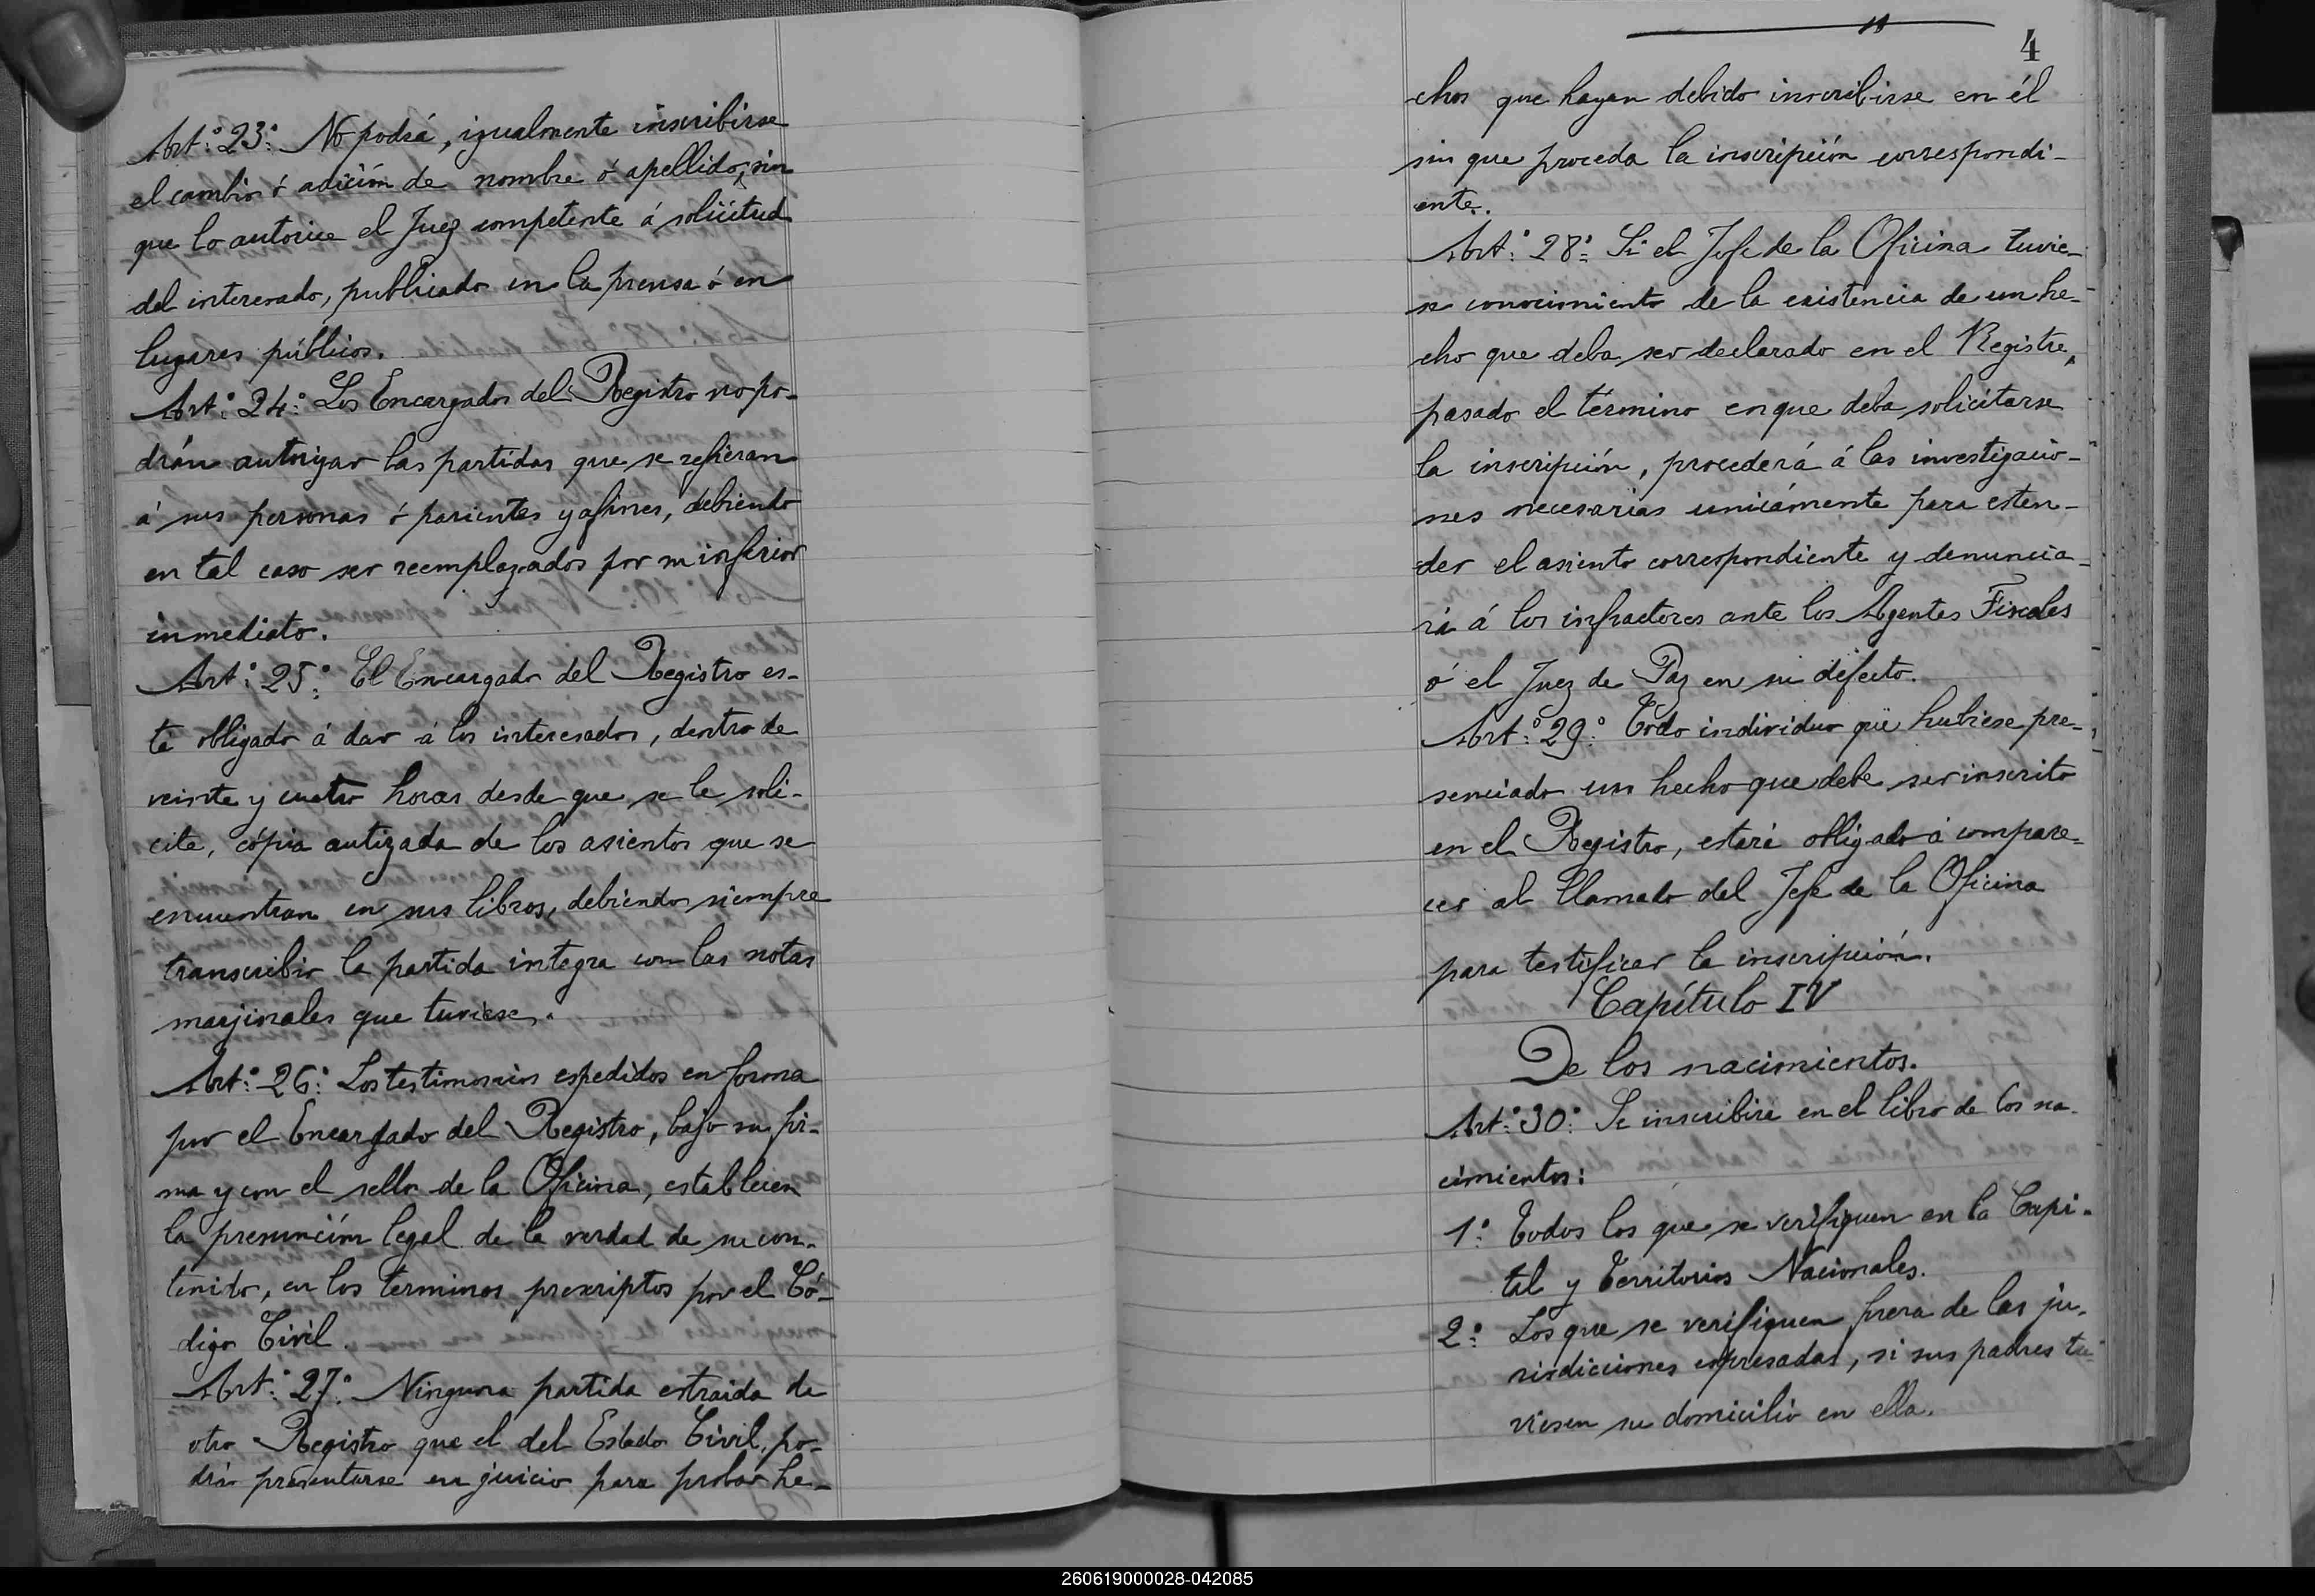 Art.º 23.º No podrá, igualmente inscribirse
el cambio ó adición de nombre ó apellido, sin
que lo autorice el Juez competente á solicitud
del interesado, publicado en la prensa ó en
lugares públicos.
Art.º 24.º Los Encargados del Registro no po-
drán autorizar las partidas que se refieran
á sus personas ó parientes y afines, debiendo
en tal caso ser reemplazados por su inferior
inmediato.
Art.º 25.º El Encargado del Registro es-
tá obligado á dar á los interesados, dentro de
veinte y cuatro horas desde que se le soli-
cite, cópia autizada de los asientos que se
encuentran en sus libros, debiendo siempre
transcribir la partida integra con las notas
marjinales que tuviese.
Art.º 26.º Los testimonios espedidos en forma
por el Encargado del Registro, bajo su fir-
ma y con el sello de la Oficina, establecen
la presunción legal de la verdad de su con-
tenido, en los terminos prescriptos por el Có-
digo Civil.
Art.º 27.º Ninguna partida estraida de
otro Registro que el del Estado Civil, po-
drá presentarse en juicio para probar he-
4
chos que hayan debido inscribirse en él
sin que proceda la inscripción correspondi-
ente.
Art.º 28.º Si el Jefe de la Oficina tuvie-
se conocimiento de la existencia de un he-
cho que deba ser declarado en el Registro,
pasado el término en que deba solicitarse
la inscripción, procederá á las investigacio-
nes necesarias unicámente para esten-
der el asiento correspondiente y denuncia-
rá á los infractores ante los Agentes Fiscales
ó el Juez de Paz en su defecto.
Art.º 29.º Todo individuo que hubiese pre-
senciado un hecho que debe ser inscrito
en el Registro, estará obligado á compare-
cer al llamado del Jefe de la Oficina
para testificar la inscripción.
Capítulo IV
De los nacimientos.
Art.º 30.º Se inscribirá en el libro de los na-
cimientos:
1.º Todos los que se verifiquen en la Capi-
tal y Territorios Nacionales.
2.º Los que se verifiquen fuera de las ju-
risdicciones espresadas, si sus padres tu-
viesen su domicilio en ella.
260619000028-042085